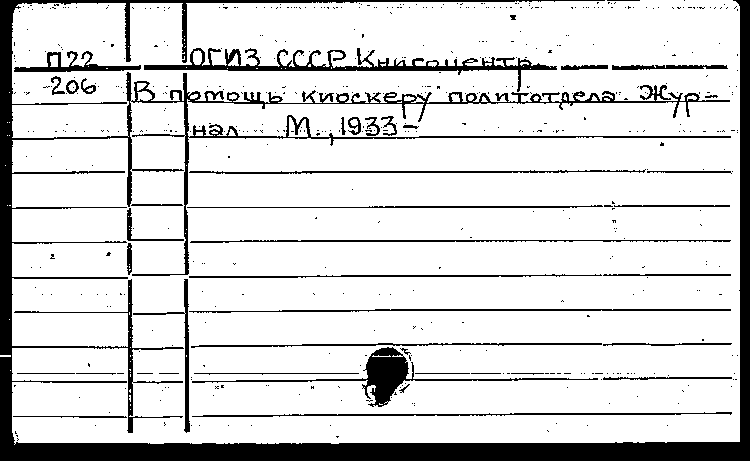 П22 ОГИЗ СССР Книгоцентр
206 В помощь киоскеру политотдела. Жур-
нал М., 1933-